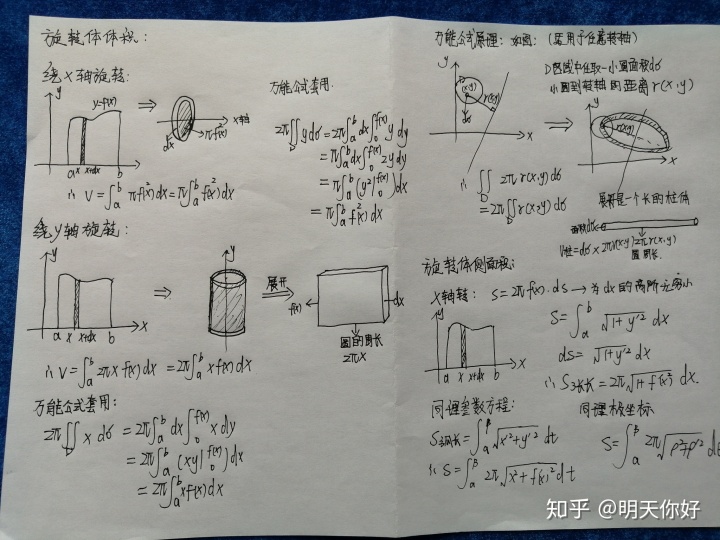 旋转体体积:
绕x轴旋转:
y
y=f(x)
a x x+dx b x
⇒
dx
πf²(x)
x轴转
∴ V=∫ₐᵇ πf²(x)dx=π∫ₐᵇ f²(x)dx
万能公式套用.
2π∬_D ydσ=2π∫ₐᵇdx∫₀^f(x) y dy
=π∫ₐᵇdx∫₀^f(x) 2y dy
=π∫ₐᵇ(y²|₀^f(x))dx
=π∫ₐᵇf²(x)dx
绕y轴旋转:
y
a x x+dx b x
⇒
y
展开
⇒
f(x)
dx
圆的周长
2πx
∴ V=∫ₐᵇ2πx f(x)dx =2π∫ₐᵇxf(x)dx
万能公式套用:
2π∬_D x dσ =2π∫ₐᵇdx∫₀^f(x) x dy
=2π∫ₐᵇ(xy|₀^f(x))dx
=2π∫ₐᵇxf(x)dx
万能公式原理: 如图: (适用于任意转轴)
y
D
(x,y)
r(x,y)
dσ
x
D区域中任取一小圆面积dσ
小圆到转轴的距离r(x,y)
⇒
y
r(x,y)
x
∴ ∬_D 2πr(x,y)dσ
=2π∬_D r(x,y)dσ
展开是一个长的柱体
面积dσ
2πr(x,y)
V柱=dσ×2πr(x,y)
圆周长.
旋转体侧面积:
x轴转: S=2πf(x)·ds→为dx的高阶无穷小
y
a x x+dx b x
S=∫ₐᵇ √1+y'² dx
ds=√1+y'² dx
=2π√1+f'(x)² dx.
同理参数方程:
S弧长=∫ₐ^β√x'²+y'² dt
∴ S=∫ₐ^β 2π√x'²+f(x)'² dt
同理极坐标
S=∫ₐ^β 2π√ρ²+ρ'² dθ
知乎 @明天你好